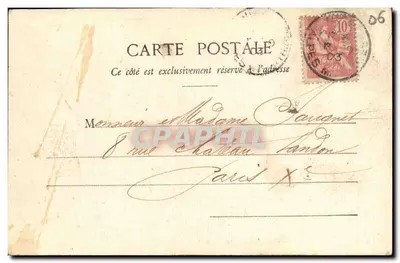 06
CARTE POSTALE
Ce côté est exclusivement réservé à l'adresse
10
03
CPAPHIL
Monsieur et Madame
8 rue Château Landon
Paris Xe